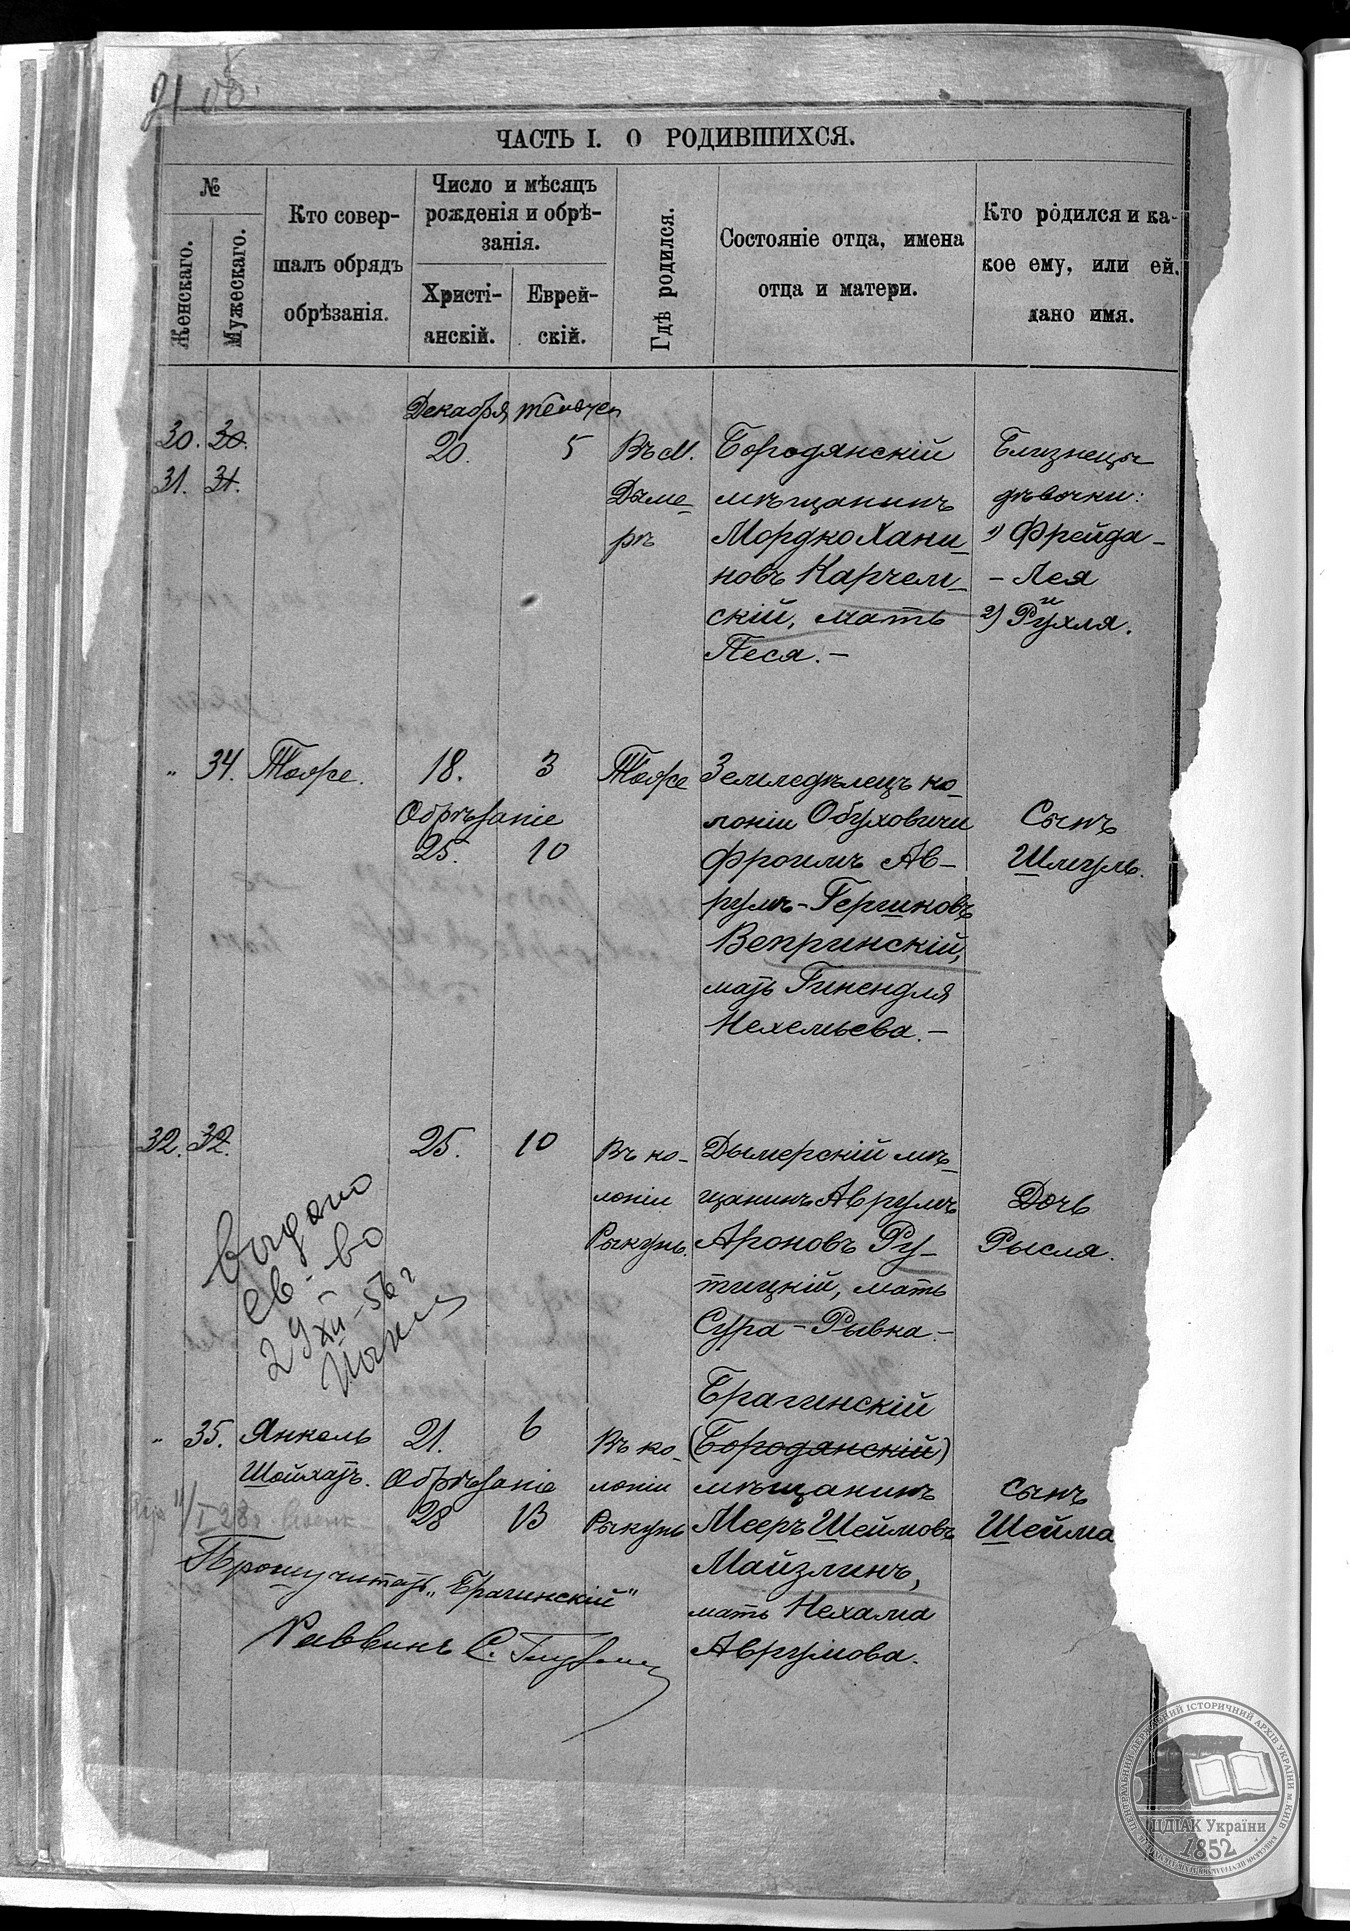 21 об.
ЧАСТЬ I. О РОДИВШИХСЯ.
№
Женскаго.
Мужескаго.
Кто совер-
шалъ обрядъ
обрѣзанія.
Число и мѣсяцъ
рожденія и обрѣ-
занія.
Христі-
анскій.
Еврей-
скій.
Гдѣ родился.
Состояніе отца, имена
отца и матери.
Кто родился и ка-
кое ему, или ей,
дано имя.
Декабря
30. 30. 20. 5
31. 31.
Въ М.
Дыме-
рѣ
Бородянскій
мѣщанинъ
Мордко Хаци-
новъ Карчем-
скій, мать
Песя.-
Близнецы
дѣвочки:
1) Фрейда-
- Лея
и
2) Рухля.
" 34. Тоже. 18. 3 Тоже
Обрѣзаніе
25. 10
Земледѣлецъ ко-
лоніи Обуховичи
Фроимъ Ав-
румъ-Гершковъ
Вепринскій,
мать Гинендля
Нехемьева.-
Сынъ
Шмуль.
32. 32. 25. 10
Въ ко-
лоніи
Рыкунь.
Дымерскій мѣ-
щанинъ Аврумъ
Ароновъ Ру-
тицкій, мать
Сура-Рывка.-
Дочь
Рысля.
Выдано
св-во
29 XII-56 г
" 35. Янкель
Шойхатъ.
21. 6
Обрѣзаніе
28 13
Въ ко-
лоніи
Рыкунь
Брагинскій
(Бородянскій)
мѣщанинъ
Мееръ Шеймовъ
Майзлинъ,
мать Нехама
Аврумова.
сынъ
Шейма
11/I 28г
Прошу читать „Брагинскій"
Раввинъ С.
ЦЕНТРАЛЬНИЙ ДЕРЖАВНИЙ ІСТОРИЧНИЙ АРХІВ УКРАЇНИ М. КИЇВ
ЦДІАК України
1852